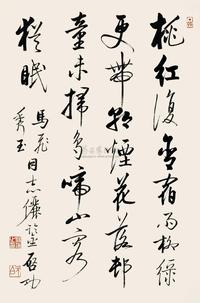 桃紅復含宿雨柳綠
更帶朝煙花落家
童未掃鳥啼山客
猶眠
馬飛
秀玉
同志儷正
啟功